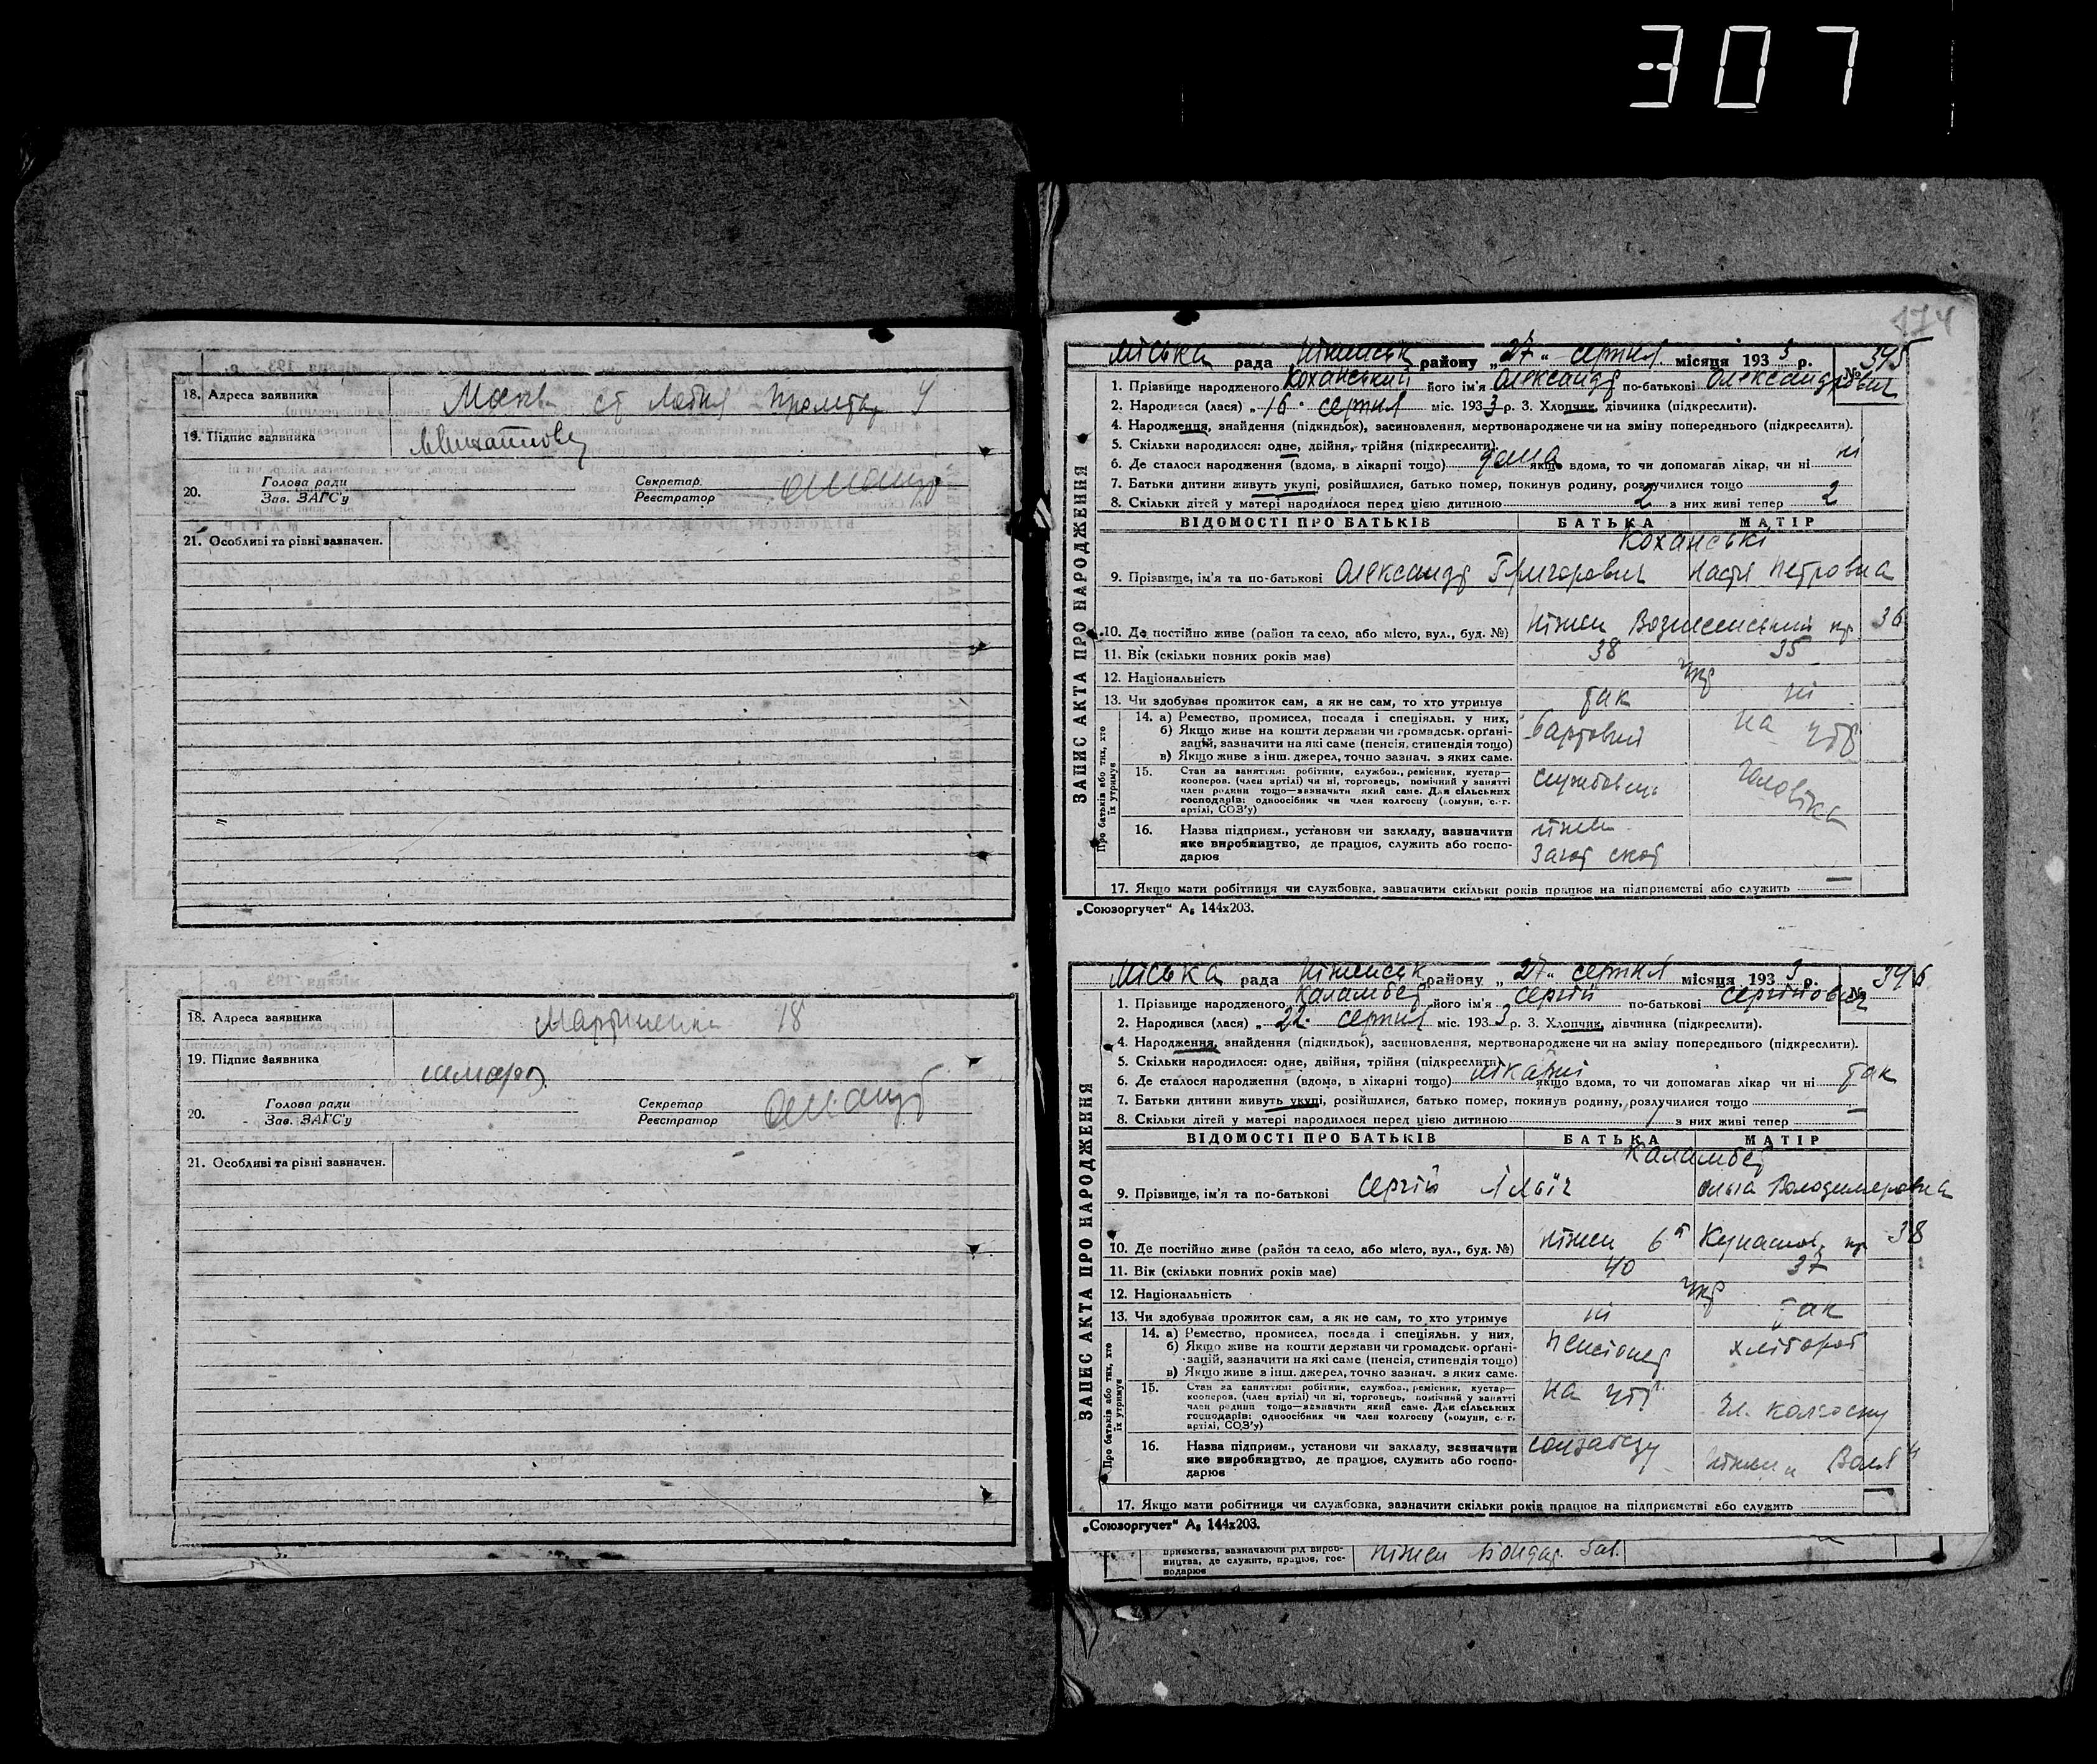 307
18. Адреса заявника Москв ст Лобня Пролетар 4
19. Підпис заявника
20. Голова ради Секретар
Зав. ЗАГС'у Реєстратор
21. Особливі та рівні зазначен.
18. Адреса заявника Мартиненка 18
19. Підпис заявника
20. Голова ради Секретар
Зав. ЗАГС'у Реєстратор
21. Особливі та рівні зазначен.
174
ЗАПИС АКТА ПРО НАРОДЖЕННЯ
Міська рада Ніженськ району „27" серпня місяця 1933 р. № 345
1. Прізвище народженого Коханський його ім'я Олександр по-батькові Олександрович
2. Народився (лася) „16" серпня міс. 1933 р. 3. Хлопчик, дівчинка (підкреслити).
4. Народження, знайдення (підкидьок), засиновлення, мертвонароджене чи на зміну попереднього (підкреслити).
5. Скільки народилося: одне, двійня, трійня (підкреслити).
6. Де сталося народження (вдома, в лікарні тощо) дома якщо вдома, то чи допомагав лікар, чи ні ні
7. Батьки дитини живуть укупі, розійшлися, батько помер, покинув родину, розлучилися тощо
8. Скільки дітей у матері народилося перед цією дитиною 2 з них живі тепер 2
ВІДОМОСТІ ПРО БАТЬКІВ БАТЬКА МАТІР
Коханські
9. Прізвище, ім'я та по-батькові Олександр Григорович Настя Петровна
10. Де постійно живе (район та село, або місто, вул., буд. №) Ніжен Вознесенський пр 36
11. Вік (скільки повних років має) 38 35
12. Національність укр
13. Чи здобуває прожиток сам, а як не сам, то хто утримує так ні
Про батьків або тих, хто їх утримує
14. а) Ремество, промисел, посада і спеціяльн. у них,
б) Якщо живе на кошти держави чи громадськ. орґані- Вартовий на утр
зацій, зазначити на які саме (пенсія, стипендія тощо)
в) Якщо живе з інш. джерел, точно зазнач. з яких саме.
15. Стан за заняттям: робітник, службов., ремісник, кустар— службовець чоловіка
кооперов. (член артілі) чи ні, торговець, помічний у занятті
член родини тощо—зазначити який саме. Для сільських
господарів: одноосібник чи член колгоспу (комуни, с.-г.
артілі, СОЗ'у)
16. Назва підприєм., установи чи закладу, зазначити Ніжен
яке виробництво, де працює, служить або госпо- Загот скот
дарює
17. Якщо мати робітниця чи службовка, зазначити скільки років працює на підприємстві або служить —
„Союзоргучет" А₅ 144х203.
ЗАПИС АКТА ПРО НАРОДЖЕННЯ
Міська рада Ніженськ району „27" серпня місяця 1933 р. № 346
1. Прізвище народженого Каламбет його ім'я Сергій по-батькові Сергійович
2. Народився (лася) „22" серпня міс. 1933 р. 3. Хлопчик, дівчинка (підкреслити).
4. Народження, знайдення (підкидьок), засиновлення, мертвонароджене чи на зміну попереднього (підкреслити).
5. Скільки народилося: одне, двійня, трійня (підкреслити).
6. Де сталося народження (вдома, в лікарні тощо) лікарні якщо вдома, то чи допомагав лікар чи ні так
7. Батьки дитини живуть укупі, розійшлися, батько помер, покинув родину, розлучилися тощо
8. Скільки дітей у матері народилося перед цією дитиною / з них живі тепер —
ВІДОМОСТІ ПРО БАТЬКІВ БАТЬКА МАТІР
Каламбет
9. Прізвище, ім'я та по-батькові Сергій Ільїч Ольга Володимеровна
10. Де постійно живе (район та село, або місто, вул., буд. №) Ніжен 6й Кунашов. пр 38
11. Вік (скільки повних років має) 40 37
12. Національність укр
13. Чи здобуває прожиток сам, а як не сам, то хто утримує ні так
Про батьків або тих, хто їх утримує
14. а) Ремество, промисел, посада і спеціяльн. у них,
б) Якщо живе на кошти держави чи громадськ. орґані- пенсіонер хлібороб
зацій, зазначити на які саме (пенсія, стипендія тощо)
в) Якщо живе з інш. джерел, точно зазнач. з яких саме.
15. Стан за заняттям: робітник, службов., ремісник, кустар— на утр. чл. колгоспу
кооперов. (член артілі) чи ні, торговець, помічний у занятті
член родини тощо—зазначити який саме. Для сільських
господарів: одноосібник чи член колгоспу (комуни, с.-г.
артілі, СОЗ'у)
16. Назва підприєм., установи чи закладу, зазначити соцзабезу Ніжен „Воля"
яке виробництво, де працює, служить або госпо-
дарює
17. Якщо мати робітниця чи службовка, зазначити скільки років працює на підприємстві або служить —
„Союзоргучет" А₅ 144х203.
приємства, зазначаючи рід вироб- Ніжен Бондар. Зав.
ництва, де служить, працює, гос-
подарює